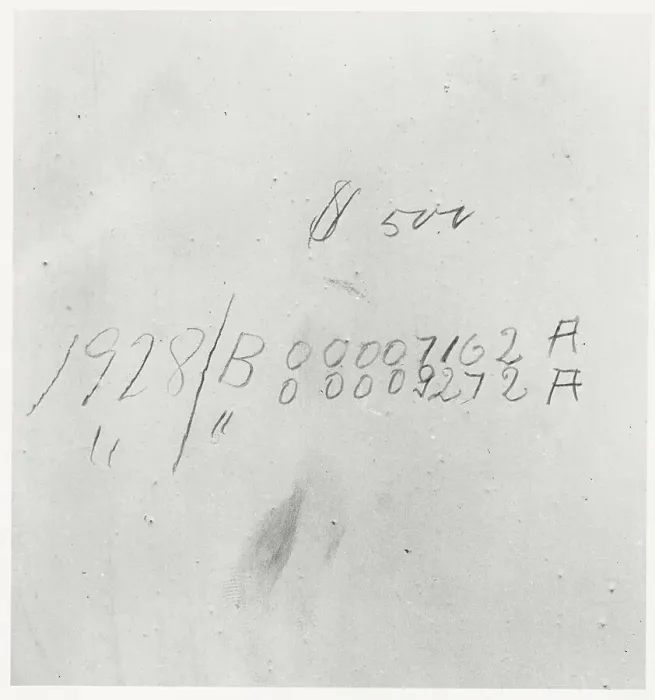 $ 500
1928/B 00007162 A
" " 00009272 A